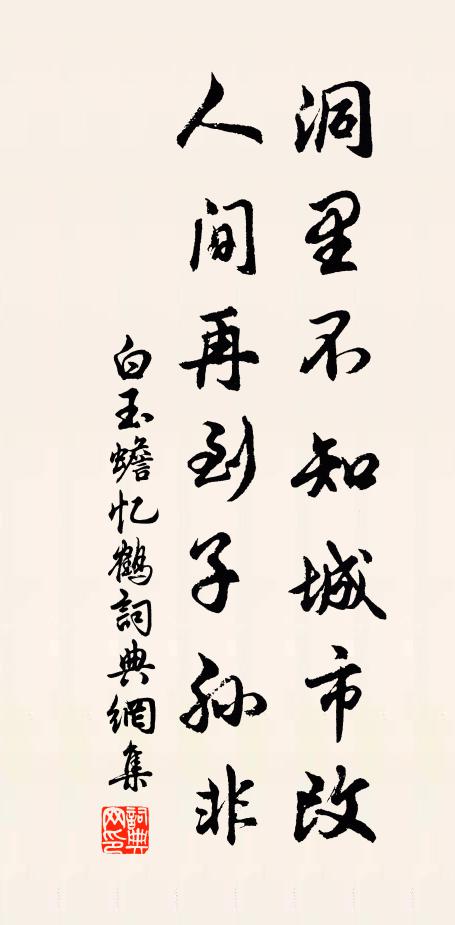 洞里不知城市改
人间再到子孙非
白玉蟾忆鹤詞典網集
詞典网印